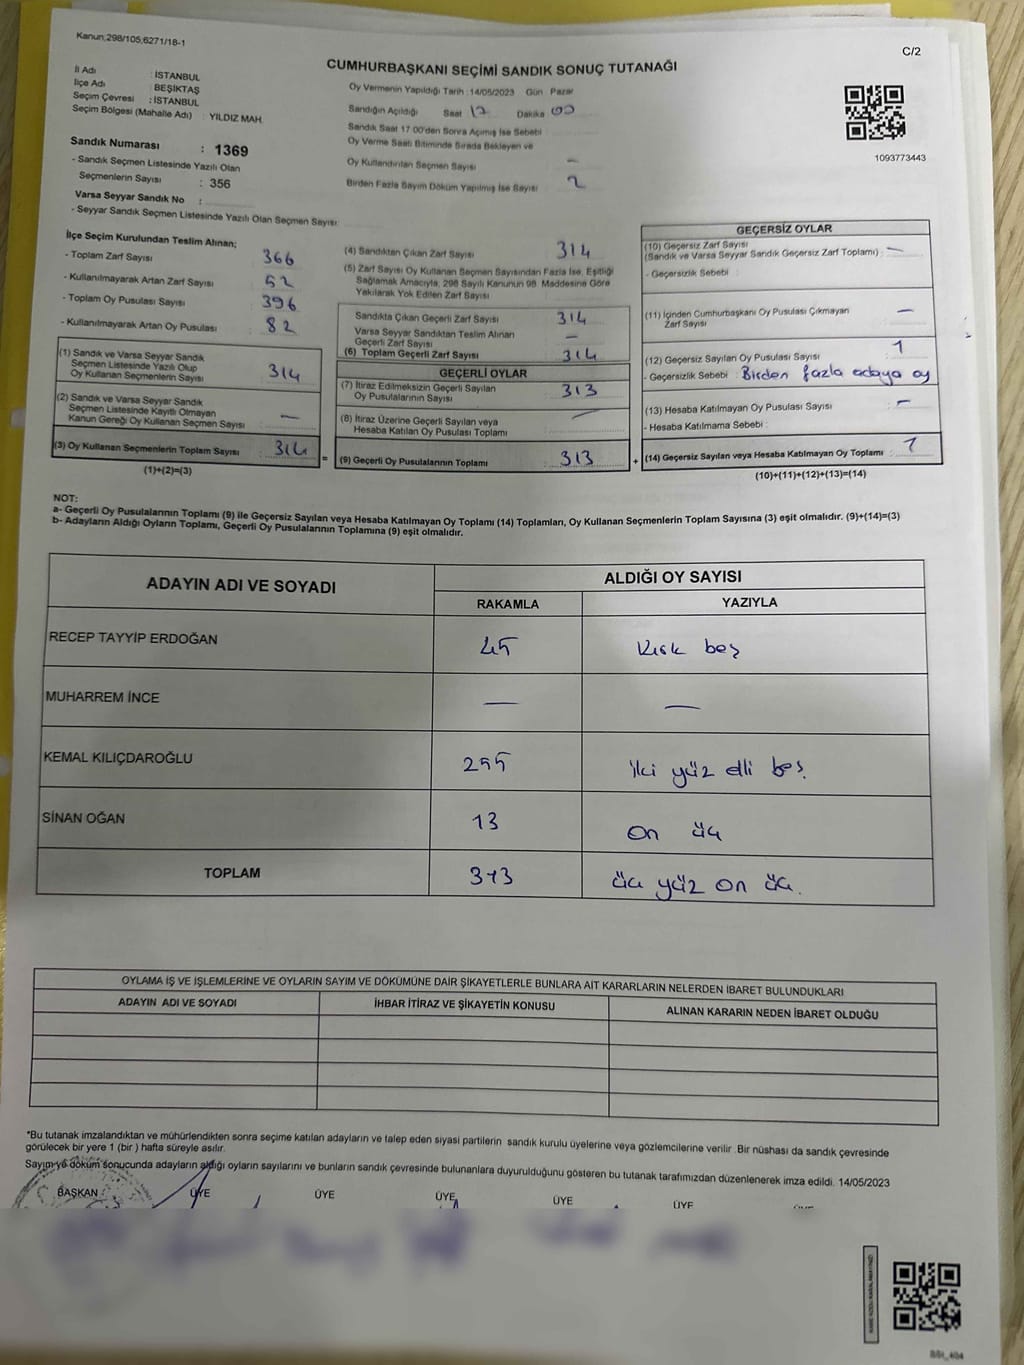 Kanun;298/105;6271/18-1
C/2
CUMHURBAŞKANI SEÇİMİ SANDIK SONUÇ TUTANAĞI
İl Adı : İSTANBUL
İlçe Adı : BEŞİKTAŞ
Seçim Çevresi : İSTANBUL
Seçim Bölgesi (Mahalle Adı) : YILDIZ MAH.
Oy Vermenin Yapıldığı Tarih :14/05/2023 Gün Pazar
Sandığın Açıldığı Saat 17 Dakika 00
Sandık Saat 17 00'den Sonra Açımış İse Sebebi
Oy Verme Saati Bitiminde Sırada Bekleyen ve
Oy Kullandırılan Seçmen Sayısı —
Birden Fazla Sayım Döküm Yapılmış İse Sayısı 2
1093773443
Sandık Numarası : 1369
- Sandık Seçmen Listesinde Yazılı Olan
Seçmenlerin Sayısı : 356
Varsa Seyyar Sandık No :
- Seyyar Sandık Seçmen Listesinde Yazılı Olan Seçmen Sayısı:
İlçe Seçim Kurulundan Teslim Alınan;
- Toplam Zarf Sayısı 366
- Kullanılmayarak Artan Zarf Sayısı 52
- Toplam Oy Pusulası Sayısı 396
- Kullanılmayarak Artan Oy Pusulası 82
(1) Sandık ve Varsa Seyyar Sandık
Seçmen Listesinde Yazılı Olup
Oy Kullanan Seçmenlerin Sayısı 314
(2) Sandık ve Varsa Seyyar Sandık
Seçmen Listesinde Kayıtlı Olmayan
Kanun Gereği Oy Kullanan Seçmen Sayısı —
(3) Oy Kullanan Seçmenlerin Toplam Sayısı 314
(1)+(2)=(3)
(4) Sandıktan Çıkan Zarf Sayısı 314
(5) Zarf Sayısı Oy Kullanan Seçmen Sayısından Fazla İse, Eşitliği
Sağlamak Amacıyla, 298 Sayılı Kanunun 98. Maddesine Göre
Yakılarak Yok Edilen Zarf Sayısı
Sandıkta Çıkan Geçerli Zarf Sayısı 314
Varsa Seyyar Sandıktan Teslim Alınan
Geçerli Zarf Sayısı —
(6) Toplam Geçerli Zarf Sayısı 314
GEÇERLİ OYLAR
(7) İtiraz Edilmeksizin Geçerli Sayılan
Oy Pusulalarının Sayısı 313
(8) İtiraz Üzerine Geçerli Sayılan veya
Hesaba Katılan Oy Pusulası Toplamı —
= (9) Geçerli Oy Pusulalarının Toplamı 313
GEÇERSİZ OYLAR
(10) Geçersiz Zarf Sayısı
(Sandık ve Varsa Seyyar Sandık Geçersiz Zarf Toplamı) : —
- Geçersizlik Sebebi
(11) İçinden Cumhurbaşkanı Oy Pusulası Çıkmayan
Zarf Sayısı —
(12) Geçersiz Sayılan Oy Pusulası Sayısı 1
- Geçersizlik Sebebi : Birden fazla adaya oy
(13) Hesaba Katılmayan Oy Pusulası Sayısı —
- Hesaba Katılmama Sebebi :
+ (14) Geçersiz Sayılan veya Hesaba Katılmayan Oy Toplamı : 1
(10)+(11)+(12)+(13)=(14)
NOT:
a- Geçerli Oy Pusulalarının Toplamı (9) ile Geçersiz Sayılan veya Hesaba Katılmayan Oy Toplamı (14) Toplamları, Oy Kullanan Seçmenlerin Toplam Sayısına (3) eşit olmalıdır. (9)+(14)=(3)
b- Adayların Aldığı Oyların Toplamı, Geçerli Oy Pusulalarının Toplamına (9) eşit olmalıdır.
ADAYIN ADI VE SOYADI ALDIĞI OY SAYISI
RAKAMLA YAZIYLA
RECEP TAYYİP ERDOĞAN 45 Kırk beş
MUHARREM İNCE — —
KEMAL KILIÇDAROĞLU 255 iki yüz elli beş.
SİNAN OĞAN 13 on üç
TOPLAM 313 üç yüz on üç.
OYLAMA İŞ VE İŞLEMLERİNE VE OYLARIN SAYIM VE DÖKÜMÜNE DAİR ŞİKAYETLERLE BUNLARA AİT KARARLARIN NELERDEN İBARET BULUNDUKLARI
ADAYIN ADI VE SOYADI İHBAR İTİRAZ VE ŞİKAYETİN KONUSU ALINAN KARARIN NEDEN İBARET OLDUĞU
*Bu tutanak imzalandıktan ve mühürlendikten sonra seçime katılan adayların ve talep eden siyasi partilerin sandık kurulu üyelerine veya gözlemcilerine verilir .Bir nüshası da sandık çevresinde
görülecek bir yere 1 (bir ) hafta süreyle asılır.
Sayım ve döküm sonucunda adayların aldığı oyların sayılarını ve bunların sandık çevresinde bulunanlara duyurulduğunu gösteren bu tutanak tarafımızdan düzenlenerek imza edildi. 14/05/2023
BAŞKAN ÜYE ÜYE ÜYE ÜYE ÜYE